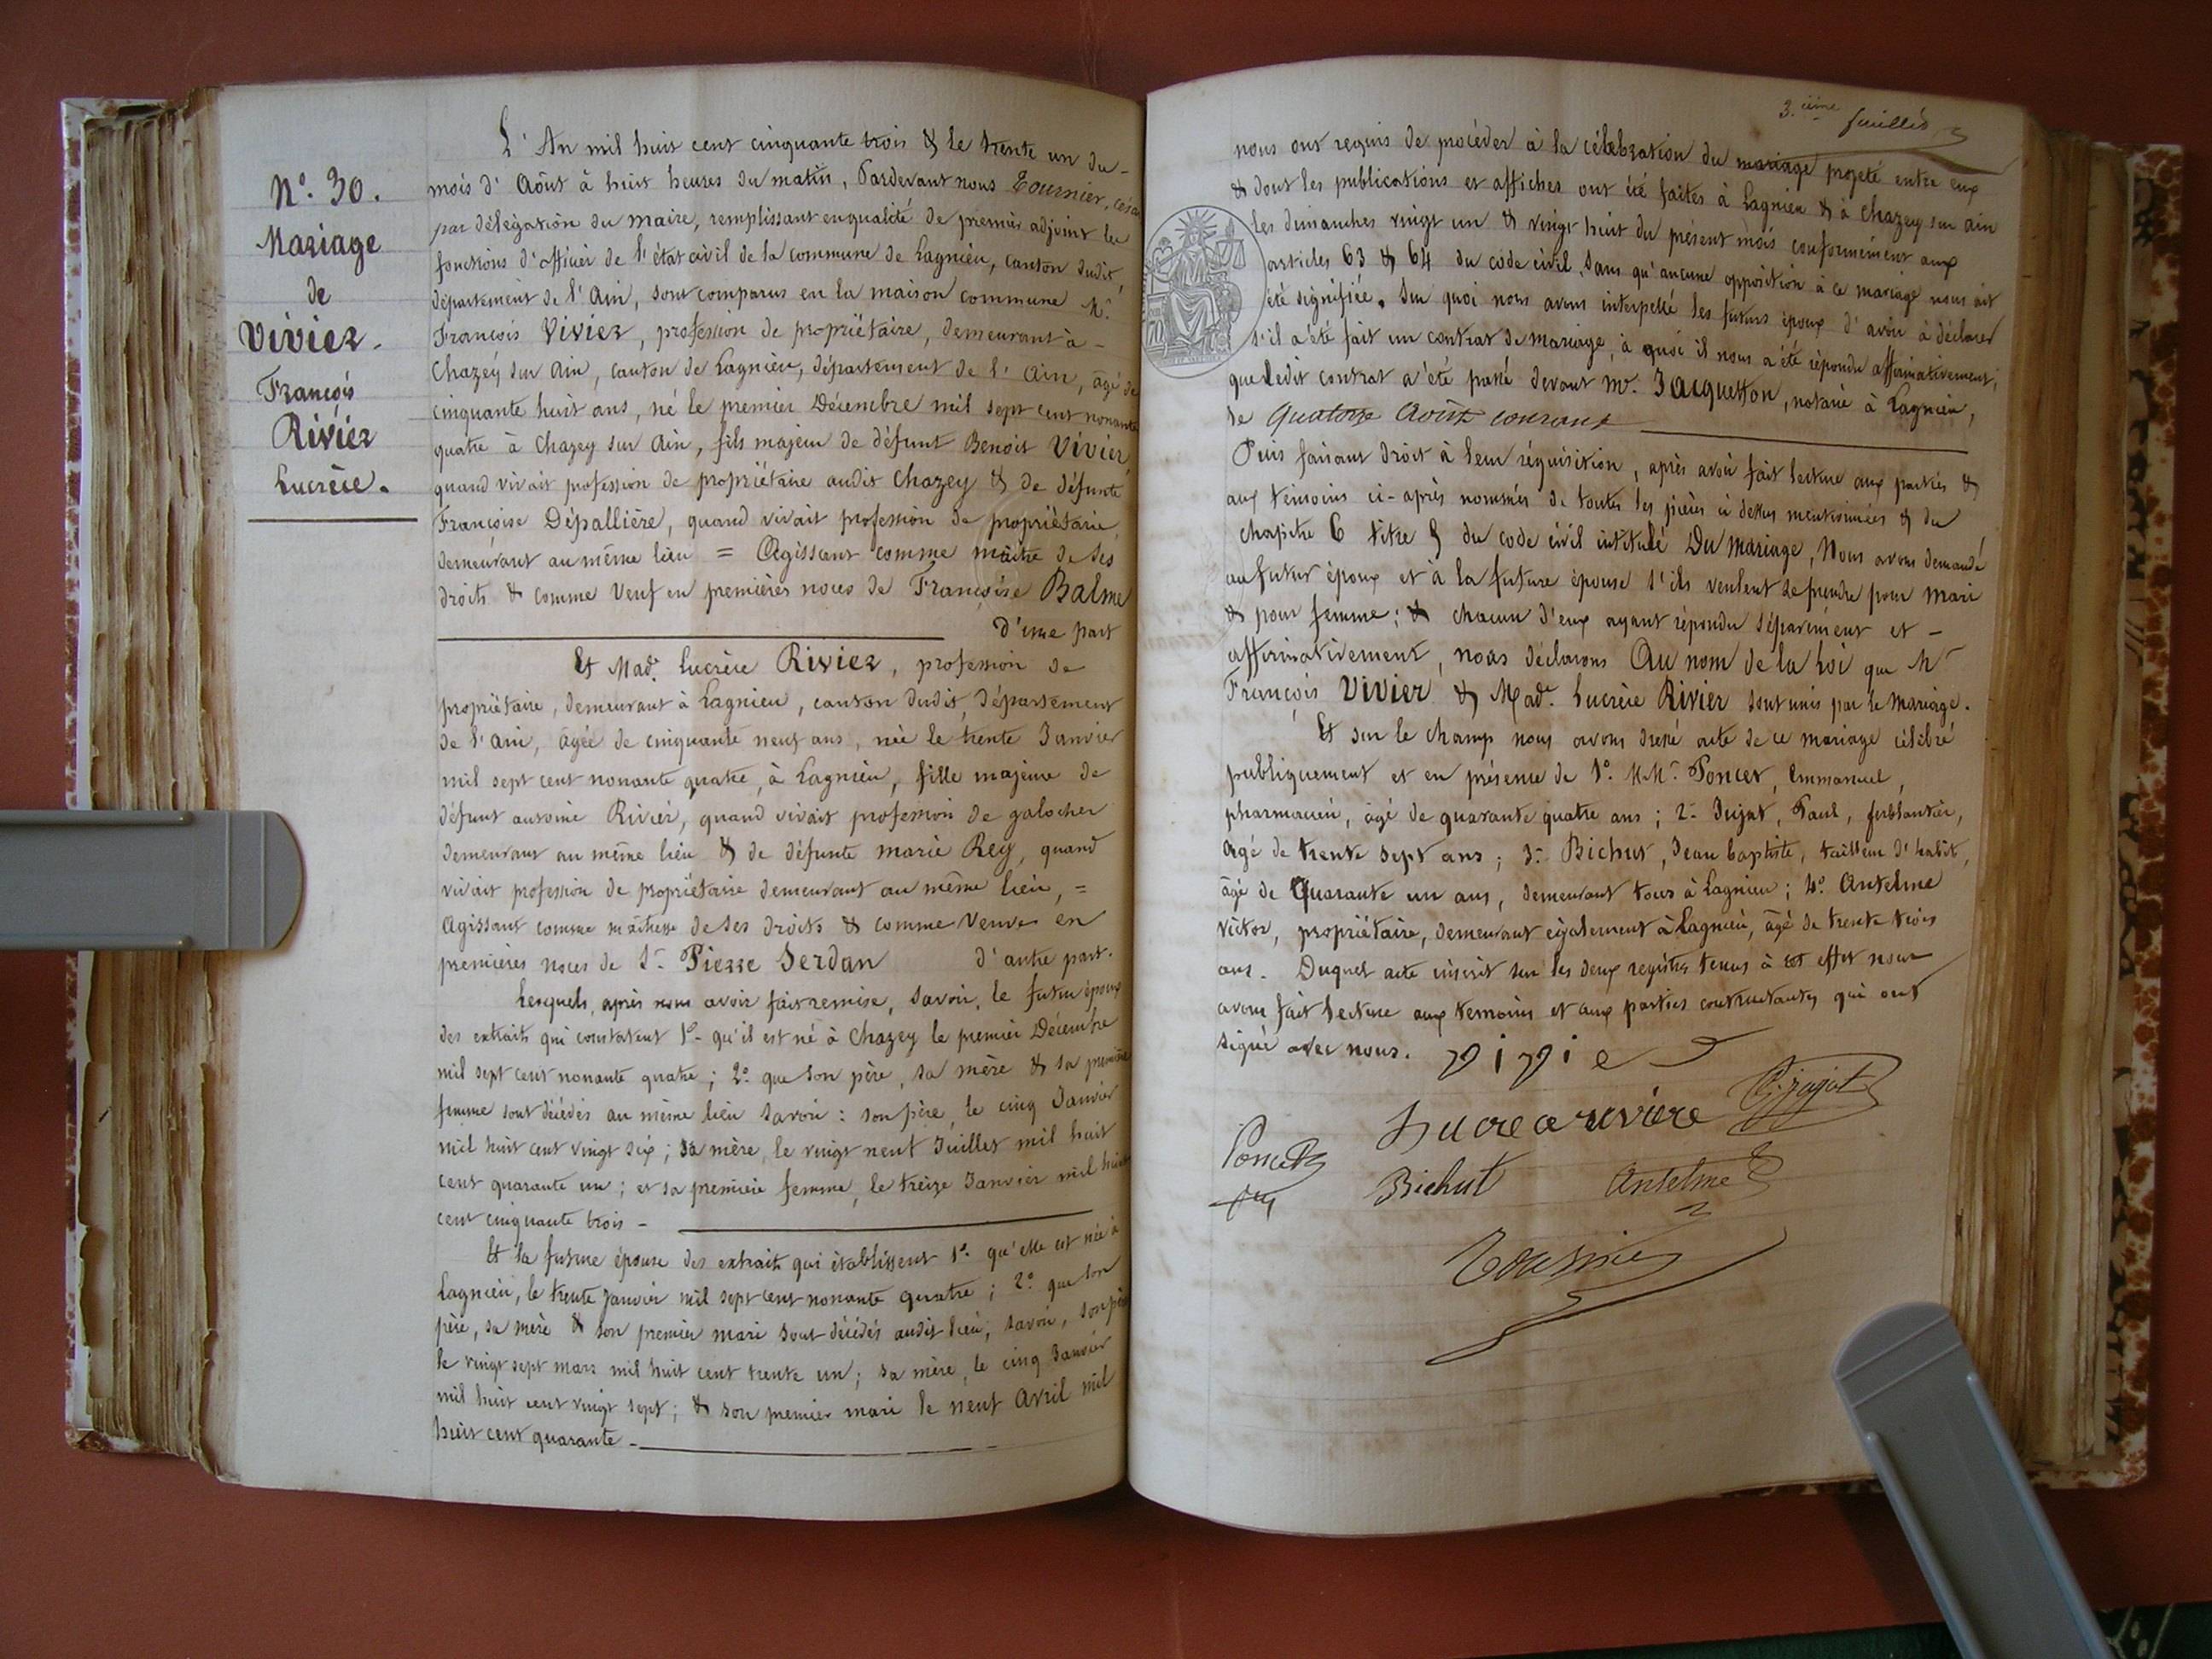 N.º 30.
Mariage
de
Vivier.
François
Rivier
Lucrèce.
L'An mil huit cent cinquante trois & le trente un du
mois d'Aôut à huit heures du matin, Pardevant nous Tournier, César
par délégation du maire, remplissant en qualité de premier adjoint les
fonctions d'officier de l'état civil de la commune de Lagnieu, canton dudit,
département de l'Ain, sont comparus en la maison commune Mr.
François Vivier, profession de propriétaire, demeurant à
Chazey sur Ain, canton de Lagnieu, département de l'Ain, âgé de
cinquante huit ans, né le premier Décembre mil sept cent nonante
quatre à Chazey sur Ain, fils majeur de défunt Benoit Vivier
quand vivait profession de propriétaire audit Chazey & de défunte
Françoise Dépallière, quand vivait profession de propriétaire
demeurant au même lieu = Agissant comme maître de ses
droits & comme Veuf en premières noces de Françoise Balme
d'une part
Et Made. Lucrèce Rivier, profession de
propriétaire, demeurant à Lagnieu, canton dudit, département
de l'Ain, âgée de cinquante neuf ans, née le trente Janvier
mil sept cent nonante quatre, à Lagnieu, fille majeure de
défunt antoine Rivier, quand vivait profession de galocher
demeurant au même lieu & de défunte marie Rey, quand
vivait profession de propriétaire demeurant au même lieu, =
Agissant comme maîtresse de ses droits & comme Veuve en
premières noces de Sr. Pierre Serdan d'autre part.
Lesquels, après nous avoir fait remise, savoir, le futur époux
des extraits qui constatent 1º. qu'il est né à Chazey le premier Décembre
mil sept cent nonante quatre; 2º. que son père, sa mère & sa première
femme sont décédés au même lieu savoir: son père, le cinq Janvier
mil huit cent vingt six; sa mère, le vingt neuf Juillet mil huit
cent quarante un; et sa première femme, le treize Janvier mil huit
cent cinquante trois -
Et la future épouse des extraits qui établissent 1º. qu'elle est née à
Lagnieu, le trente janvier mil sept cent nonante quatre; 2º. que son
père, sa mère & son premier mari sont décédés audit lieu, savoir, son père
le vingt sept mars mil huit cent trente un; sa mère, le cinq Janvier
mil huit cent vingt sept; & son premier mari le neuf Avril mil
huit cent quarante -
3.ième feuillet
nous ont requis de procéder à la célébration du mariage projeté entre eux
& dont les publications et affiches ont été faites à Lagnieu & à Chazey sur ain
les dimanches vingt un & vingt huit du présent mois conformément aux
articles 63 & 64 du code civil, sans qu'aucune opposition à ce mariage nous ait
été signifiée. Sur quoi nous avons interpellé les futurs époux d'avoir à déclarer
s'il a été fait un contrat de mariage, à quoi il nous a été répondu affirmativement,
que ledit contrat a été passé devant Mr. Jacquetton, notaire à Lagnieu,
le quatorze Août courant
Puis faisant droit à leur réquisition, après avoir fait lecture aux parties &
aux témoins ci-après nommés de toutes les pièces ci dessus mentionnées & du
chapitre 6 titre 5 du code civil intitulé Du Mariage, Nous avons demandé
au futur époux et à la future épouse s'ils veulent se prendre pour mari
& pour femme; & chacun d'eux ayant répondu séparément et -
affirmativement, nous déclarons Au nom de la Loi que Mr.
François Vivier & Made. Lucrèce Rivier sont unis par le mariage.
Et sur le champ nous avons dressé acte de ce mariage célébré
publiquement et en présence de 1º. M.Mr. Poncet, Emmanuel,
pharmacien, âgé de quarante quatre ans; 2º. Jujat, Paul, ferblantier,
âgé de trente sept ans; 3º. Bichut, Jean baptiste, tailleur d'habit,
âgé de Quarante un ans, demeurant tous à Lagnieu; 4º. Antelme
victor, propriétaire, demeurant également à Lagnieu, âgé de trente trois
ans. Duquel acte inscrit sur les deux registres tenus à cet effet nous
avons fait lecture aux temoins et aux parties contractantes qui ont
signé avec nous. vivier
Lucrece riviere P. jujat
Poncet
Bichut Antelme
Tournier